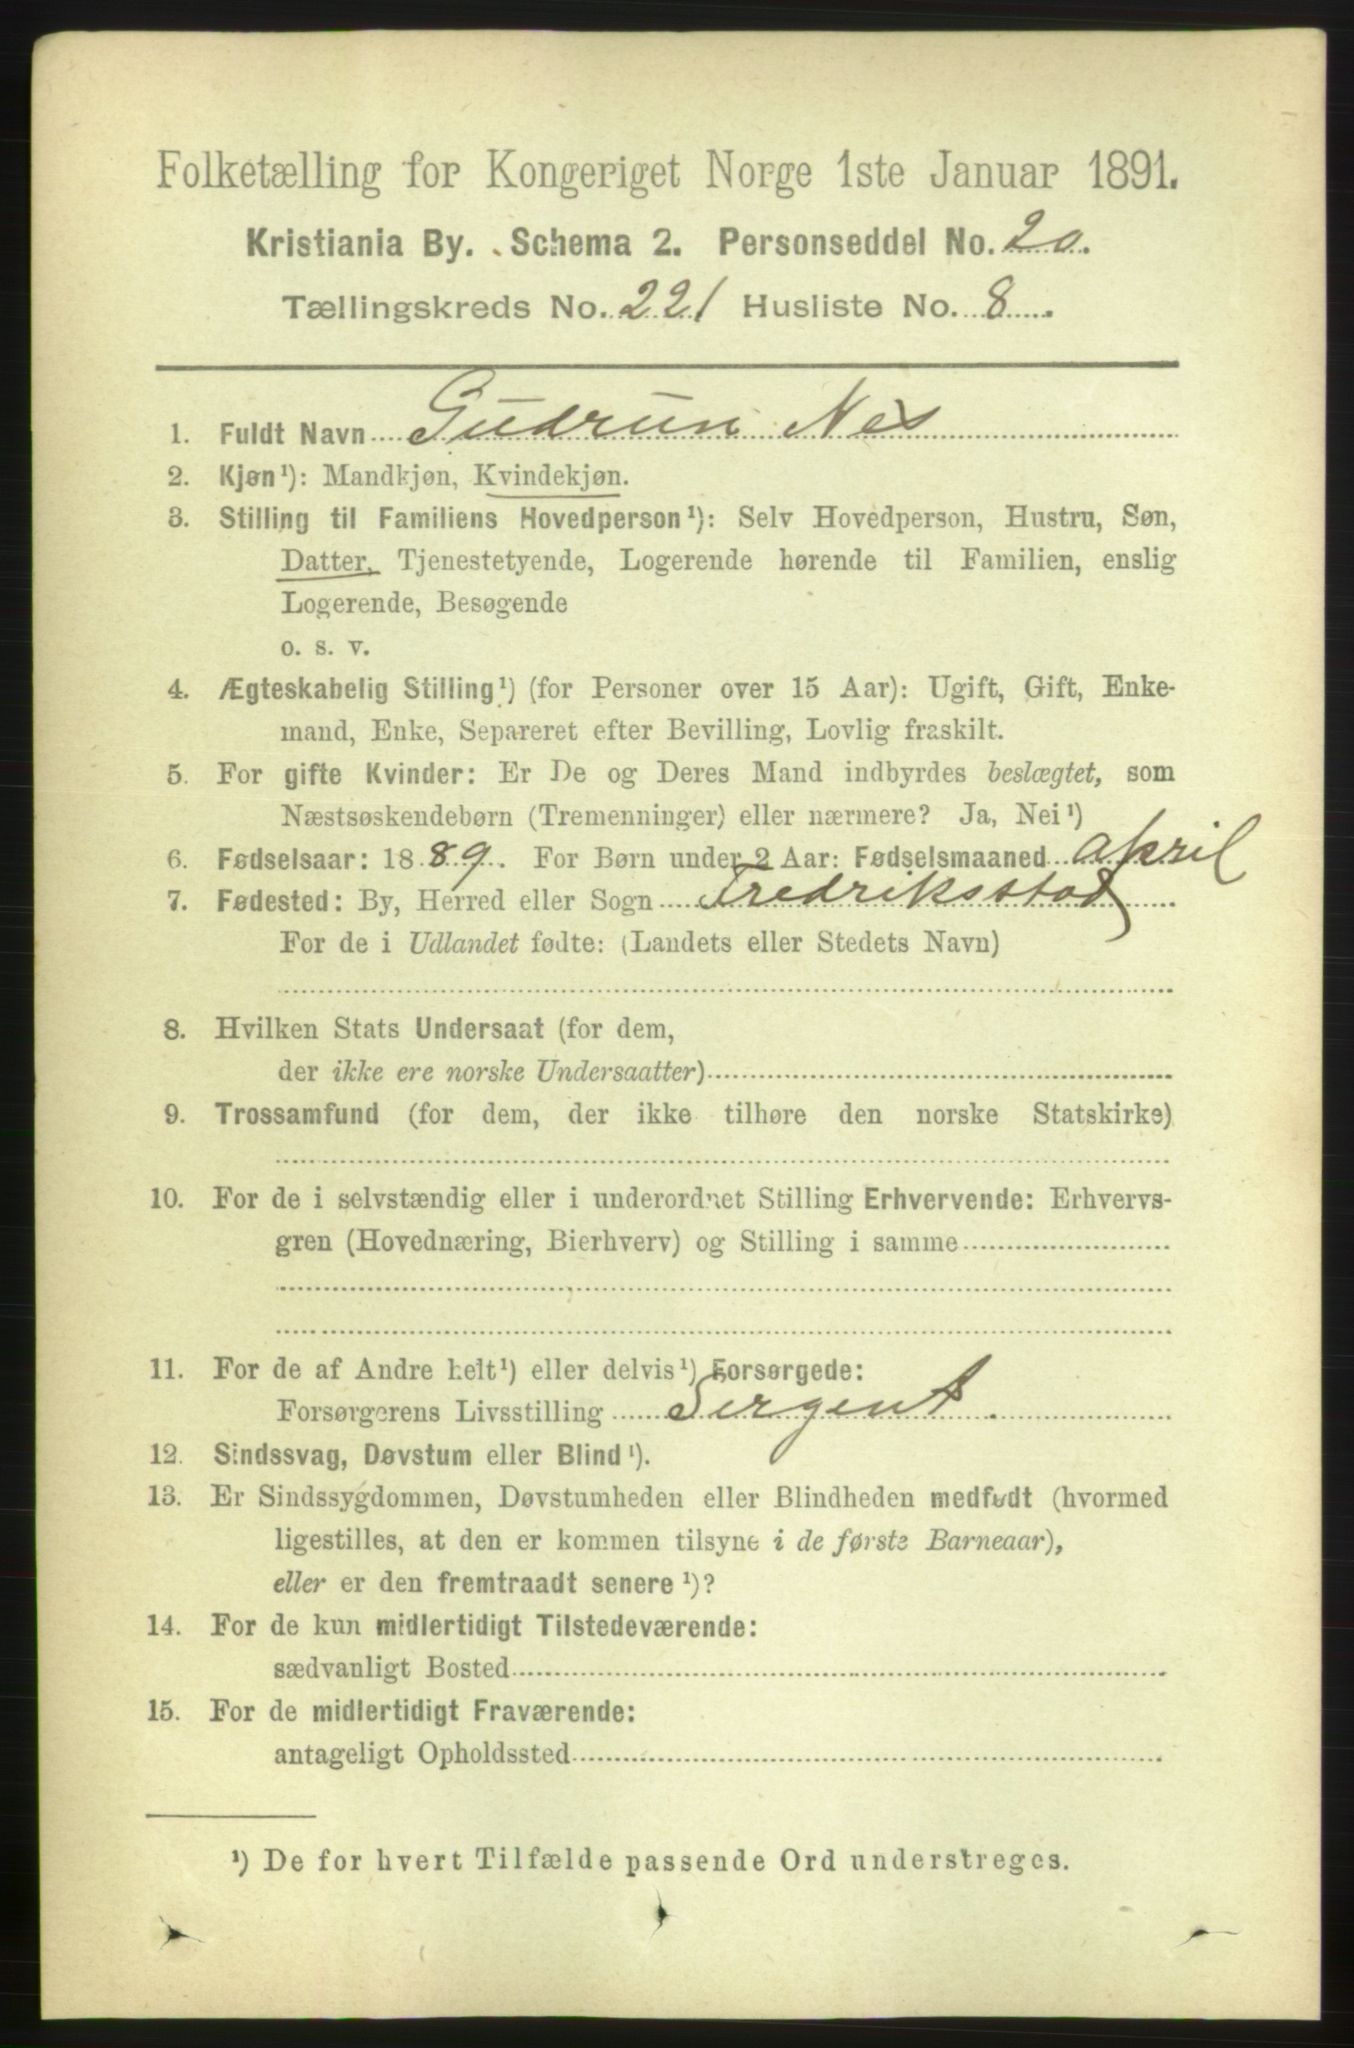 Folketælling for Kongeriget Norge 1ste Januar 1891.
Kristiania By. Schema 2. Personseddel No. 20.
Tællingskreds No. 221 Husliste No. 8.
1. Fuldt Navn Gudrun Nes
2. Kjøn¹): Mandkjøn, Kvindekjøn.
3. Stilling til Familiens Hovedperson¹): Selv Hovedperson, Hustru, Søn,
Datter, Tjenestetyende, Logerende hørende til Familien, enslig
Logerende, Besøgende
o. s. v.
4. Ægteskabelig Stilling¹) (for Personer over 15 Aar): Ugift, Gift, Enke-
mand, Enke, Separeret efter Bevilling, Lovlig fraskilt.
5. For gifte Kvinder: Er De og Deres Mand indbyrdes beslægtet, som
Næstsøskendebørn (Tremenninger) eller nærmere? Ja, Nei¹)
6. Fødselsaar: 1889. For Børn under 2 Aar: Fødselsmaaned april
7. Fødested: By, Herred eller Sogn Fredriksstad
For de i Udlandet fødte: (Landets eller Stedets Navn)
8. Hvilken Stats Undersaat (for dem,
der ikke ere norske Undersaatter)
9. Trossamfund (for dem, der ikke tilhøre den norske Statskirke)
10. For de i selvstændig eller i underordnet Stilling Erhvervende: Erhvervs-
gren (Hovednæring, Bierhverv) og Stilling i samme
11. For de af Andre helt¹) eller delvis¹) Forsørgede:
Forsørgerens Livsstilling Sergent.
12. Sindssvag, Døvstum eller Blind¹).
13. Er Sindssygdommen, Døvstumheden eller Blindheden medfødt (hvormed
ligestilles, at den er kommen tilsyne i de første Barneaar),
eller er den fremtraadt senere¹)?
14. For de kun midlertidigt Tilstedeværende:
sædvanligt Bosted
15. For de midlertidigt Fraværende:
antageligt Opholdssted
¹) De for hvert Tilfælde passende Ord understreges.